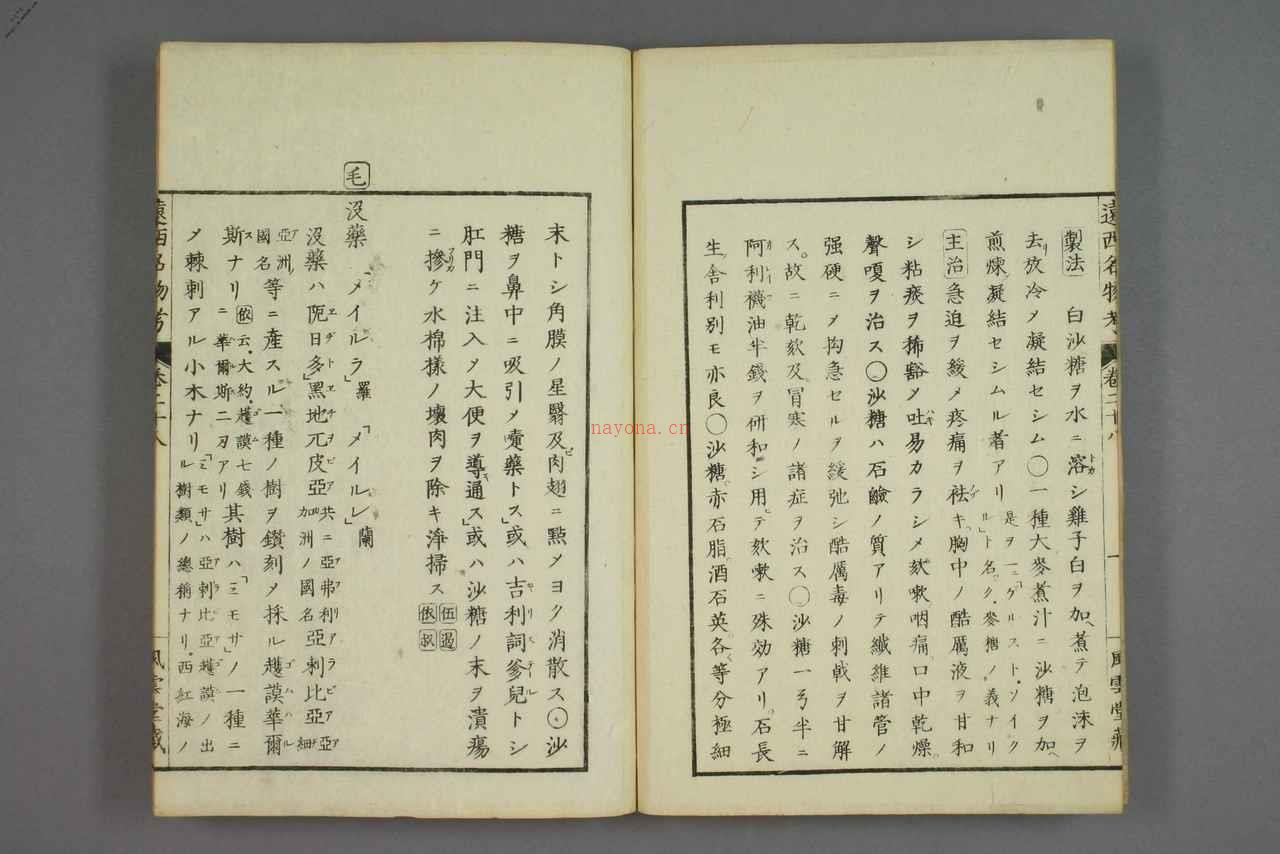 遠西名物考 卷二十八 一 風雲堂藏
製法 白沙糖ヲ水ニ溶シ雞子白ヲ加ヘ煮テ泡沫ヲ
去リ放冷メ凝結セシム〇一種大麥煮汁ニ沙糖ヲ加ヘ
煎煉凝結セシムル者アリ 是ヲ一ニ「ゲルスト、ソイクル」ト名ク、麥糖ノ義ナリ
主治 急迫ヲ緩メ疼痛ヲ袪キ胸中ノ酷厲液ヲ甘和
シ粘痰ヲ稀豁メ吐易カラシメ欬嗽咽痛口中乾燥
聲嗄ヲ治ス〇沙糖ハ石鹼ノ質アリテ纖維諸管ノ
强硬ニメ拘急セルヲ緩弛シ酷厲毒ノ刺戟ヲ甘解
ス。故ニ乾欬及冒寒ノ諸症ヲ治ス〇沙糖一弓半ニ
阿利襪油半錢ヲ研和シ用テ欬嗽ニ殊効アリ。石長
生舎利別モ亦良〇沙糖赤石脂酒石英各等分極細
末トシ角膜ノ星翳及肉翅ニ點メヨク消散ス〇沙
糖ヲ鼻中ニ吸引メ嚏藥トス」或ハ吉利詞爹兒トシ
肛門ニ注入メ大便ヲ導通ス」或ハ沙糖ノ末ヲ潰瘍
ニ摻ケ水棉樣ノ壞肉ヲ除キ淨掃ス 伍 過 依 叔
毛 沒藥 「メイルラ」羅 「メイルレ」蘭
沒藥ハ阨日多」黑地兀皮亞 共ニ亞弗利加洲ノ國名 亞剌比亞 亞細
亞洲ノ國名 等ニ產スル一種ノ樹ヲ鑽刻メ採ル護謨華爾
斯ナリ 依云、大約護謨七錢ニ華爾斯二刃アリ 其樹ハ「ミモサ」ノ一種ニ
メ棘刺アル小木ナリ 「ミモサ」ハ亞剌比亞護謨ノ出ル樹類ノ總稱ナリ。西紅海ノ
遠西名物考 卷二十八 一 風雲堂藏
nayona.cn